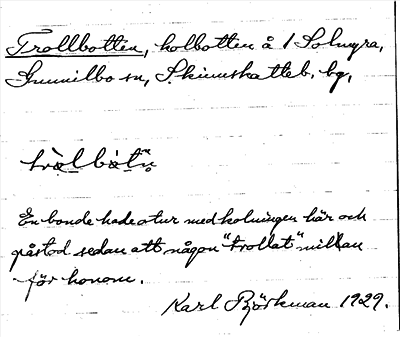 Trollbotten, kolbotten å 1 Solmyra,
Gunnilbo sn, Skinnskatteb. bg,
En bonde hade otur med kolningen här och
påstod sedan att någon "trollat" milan
för honom.
Karl Björkman 1929.